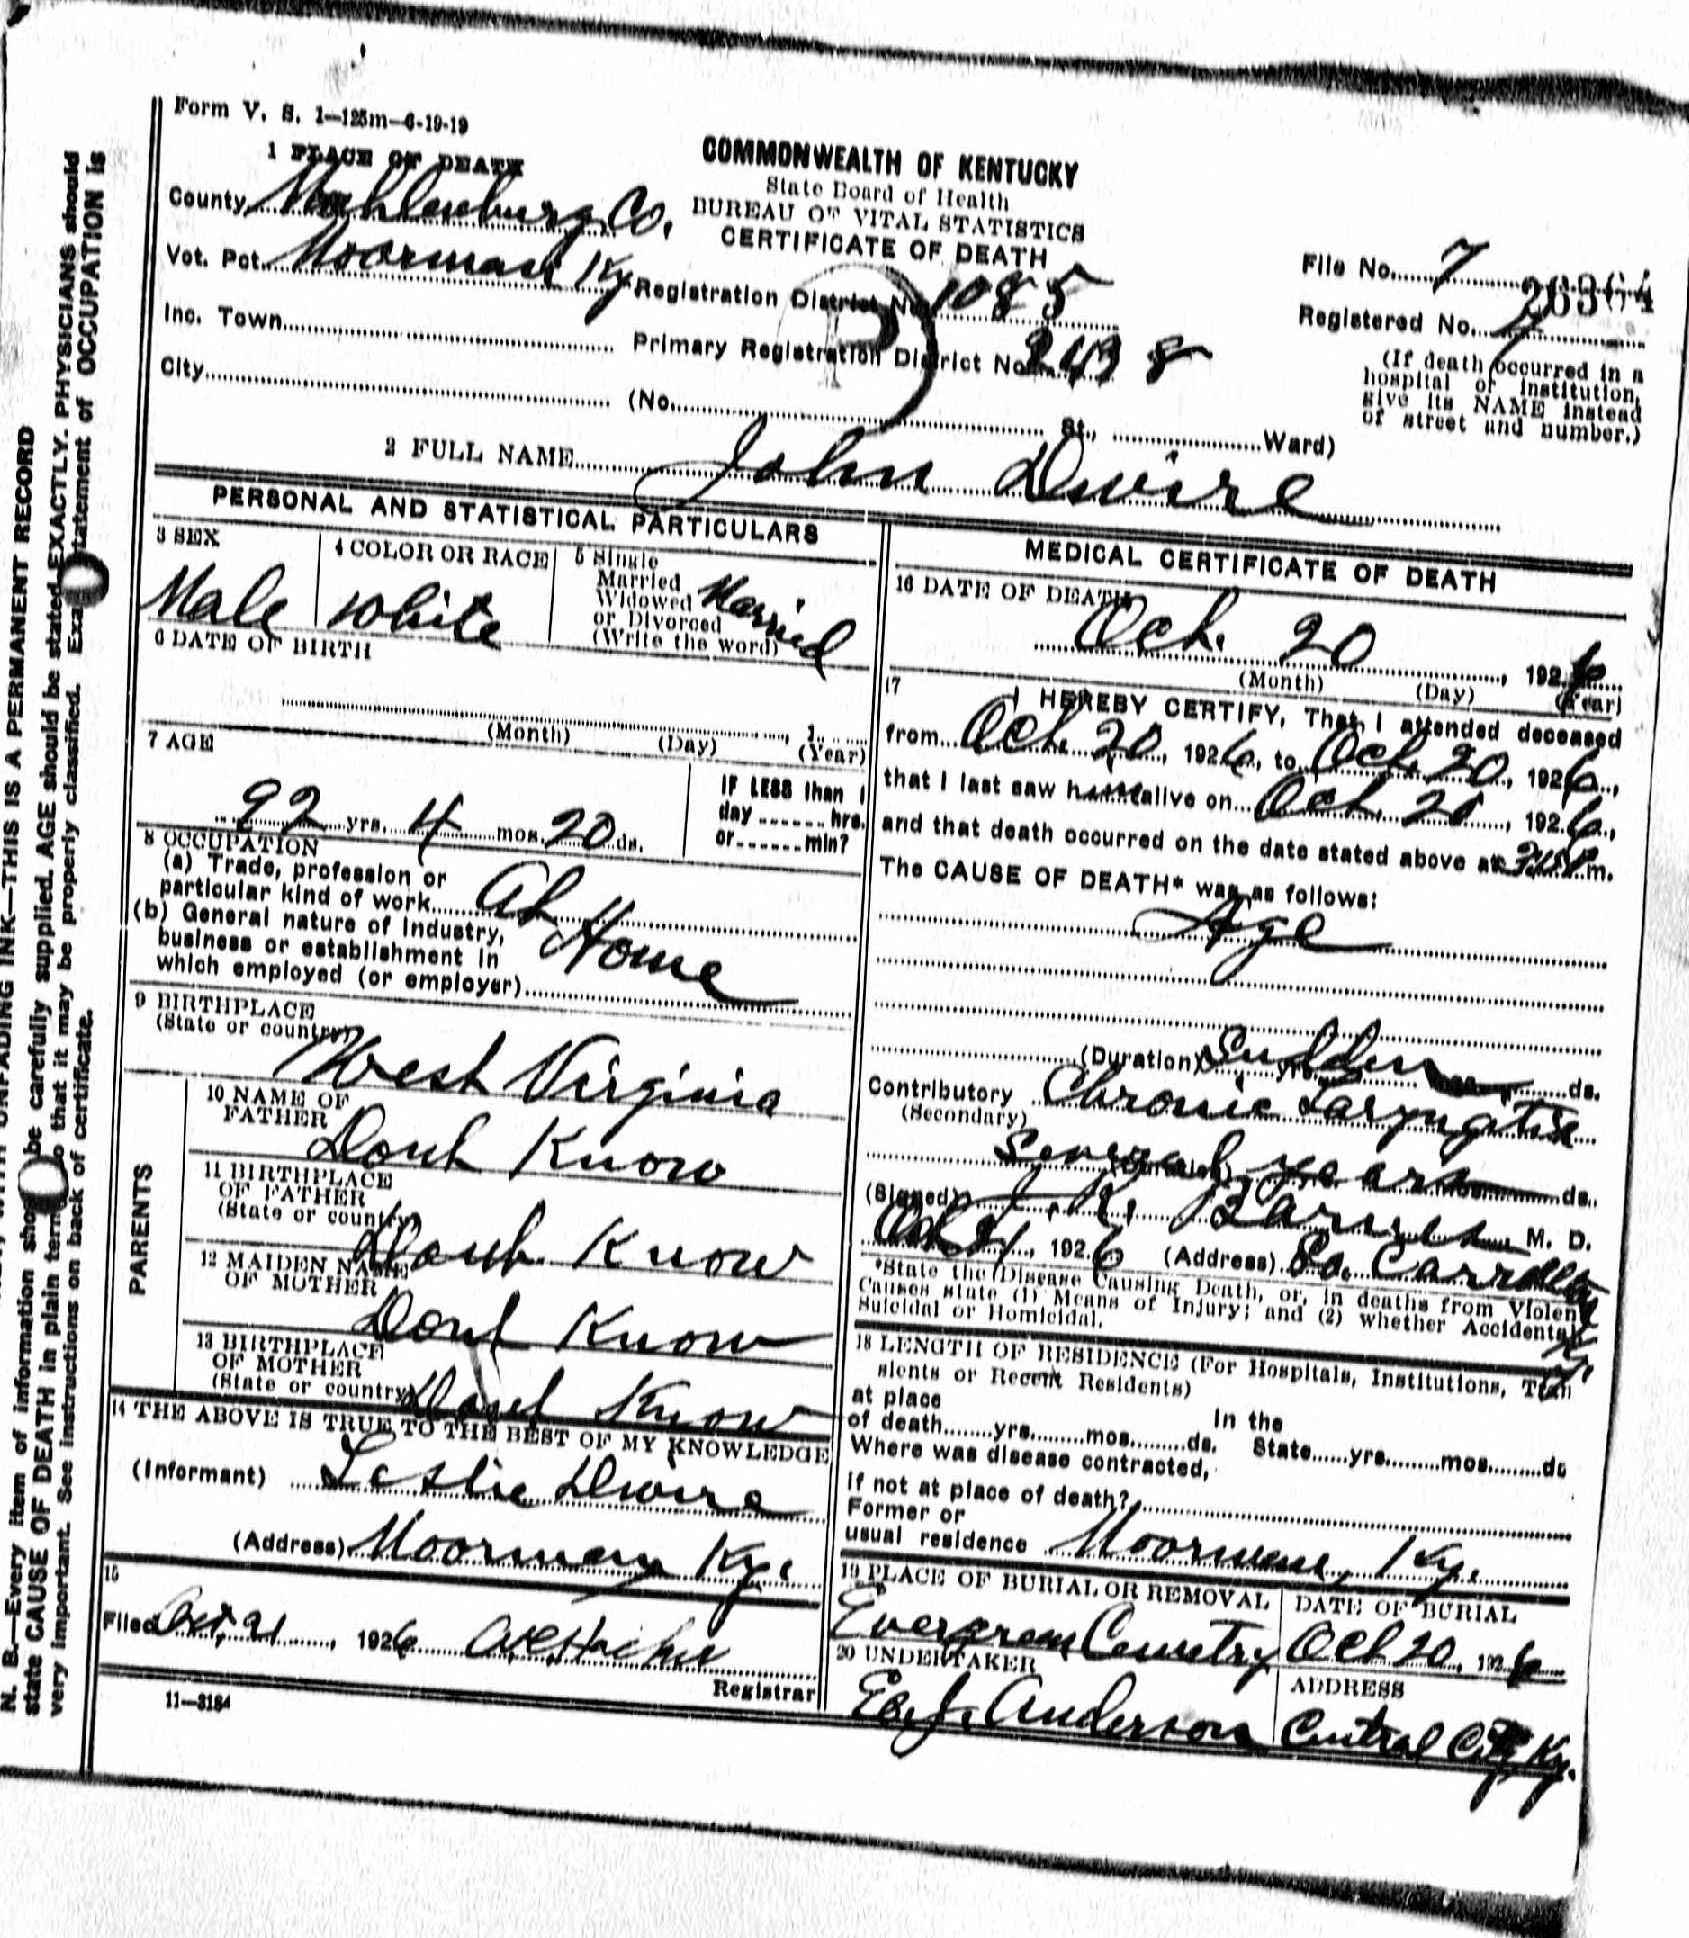 Form V. S. 1—125m—6-19-19
1 PLACE OF DEATH
COMMONWEALTH OF KENTUCKY
State Board of Health
BUREAU OF VITAL STATISTICS
CERTIFICATE OF DEATH
County Muhlenburg Co.
Vot. Pct. Moorman Ky
Registration District No. 1085
File No. 7
Inc. Town
Primary Registration District No.
Registered No. 7
City
(No. St., Ward)
(If death occurred in a
hospital or institution,
give its NAME instead
of street and number.)
2 FULL NAME John Dwire
PERSONAL AND STATISTICAL PARTICULARS
3 SEX
Male
4 COLOR OR RACE
White
5 Single
Married
Widowed
or Divorced
(Write the word)
Married
6 DATE OF BIRTH
(Month) (Day) 1 (Year)
7 AGE
92 yrs. 4 mos. 20 ds.
IF LESS than 1
day hrs.
or min?
8 OCCUPATION
(a) Trade, profession or
particular kind of work At
(b) General nature of industry,
business or establishment in
which employed (or employer)
Home
9 BIRTHPLACE
(State or country)
West Virginia
PARENTS
10 NAME OF
FATHER
Dont Know
11 BIRTHPLACE
OF FATHER
(State or country)
Dont Know
12 MAIDEN NAME
OF MOTHER
Dont Know
13 BIRTHPLACE
OF MOTHER
(State or country)
Dont Know
14 THE ABOVE IS TRUE TO THE BEST OF MY KNOWLEDGE
(Informant) Leslie Dwire
(Address) Moorman Ky.
15
Filed Oct, 21, 1926
Registrar
11—3184
MEDICAL CERTIFICATE OF DEATH
16 DATE OF DEATH
Oct. 20, 1926
(Month) (Day) (Year)
17 I HEREBY CERTIFY, That I attended deceased
from Oct. 20, 1926, to Oct. 20, 1926,
that I last saw h alive on Oct. 20, 1926,
and that death occurred on the date stated above at m.
The CAUSE OF DEATH* was as follows:
Age
(Duration) Sudden ds.
Contributory Chronic Laryngitis
(Secondary)
Several years ds.
(Signed) J. R. Barnes M. D.
Oct 21, 1926 (Address) So. Carrollton
*State the Disease Causing Death, or, in deaths from Violent
Causes state (1) Means of Injury; and (2) whether Accidental,
Suicidal or Homicidal.
18 LENGTH OF RESIDENCE (For Hospitals, Institutions, Tran
sients or Recent Residents)
at place
of death yrs. mos. ds. In the
State yrs. mos. ds
Where was disease contracted,
if not at place of death?
Former or
usual residence Moorman, Ky.
19 PLACE OF BURIAL OR REMOVAL
Evergreen Cemetry
DATE OF BURIAL
Oct 20, 1926
20 UNDERTAKER
E. J. Anderson
ADDRESS
Central City Ky.
N. B.—Every item of information should be carefully supplied. AGE should be stated EXACTLY. PHYSICIANS should
state CAUSE OF DEATH in plain terms so that it may be properly classified. Exact statement of OCCUPATION is
very important. See instructions on back of certificate.
UNFADING INK—THIS IS A PERMANENT RECORD